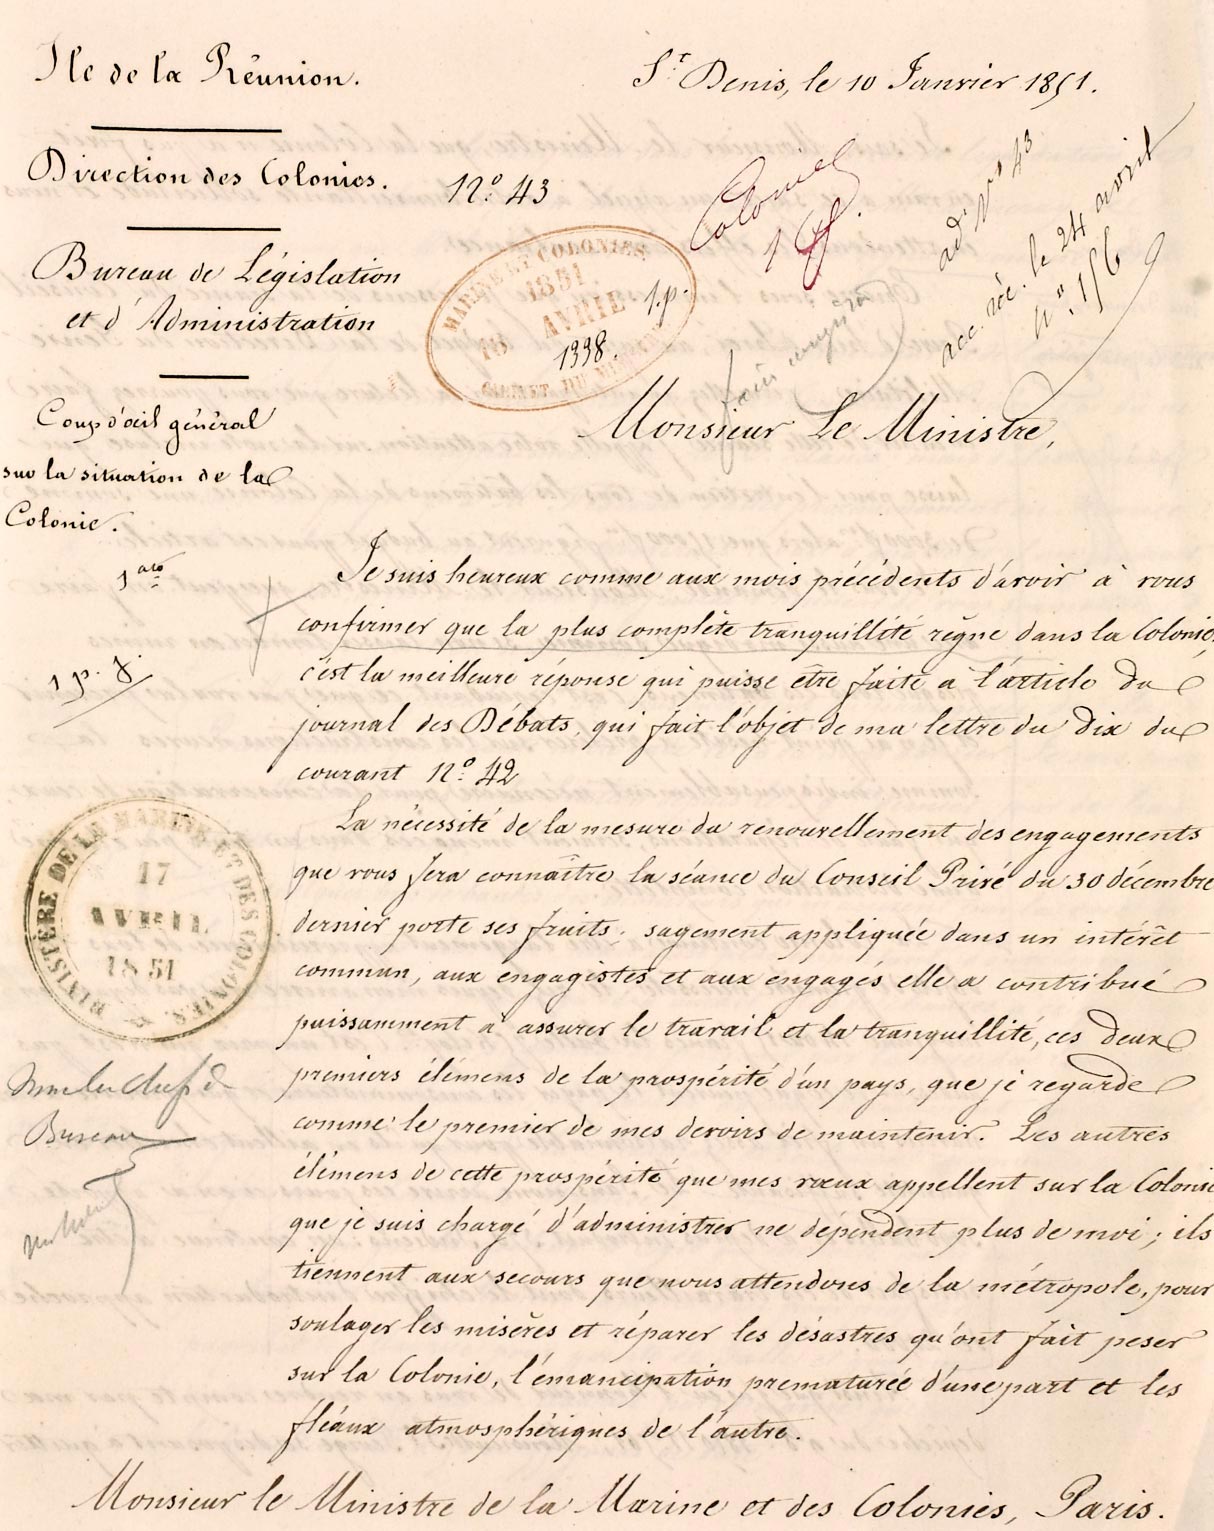 Ile de la Réunion.
St Denis, le 10 Janvier 1851.
Direction des Colonies.
No. 43
Colonies
ad. No 43
acc. réc. le 24 avril
No. 156
Bureau de Législation
et d'Administration
MARINE ET COLONIES
1851
18 AVRIL
1338.
CABINET DU MINISTRE
1.p.
Coup d'œil général
sur la situation de la
Colonie.
Monsieur Le Ministre,
1 p. j.
Je suis heureux comme aux mois précédents d'avoir à vous
confirmer que la plus complête tranquillité règne dans la Colonie,
c'est la meilleure réponse qui puisse être faite à l'article du
journal des Débats, qui fait l'objet de ma lettre du dix du
courant No. 42
La nécessité de la mesure du renouvellement des engagements
que vous fera connaître la séance du Conseil Privé du 30 décembre
dernier porte ses fruits; sagement appliquée dans un intérêt
commun, aux engagistes et aux engagés elle a contribué
puissamment à assurer le travail et la tranquillité, ces deux
premiers élémens de la prospérité d'un pays, que je regarde
comme le premier de mes devoirs de maintenir. Les autres
élémens de cette prospérité que mes vœux appellent sur la Colonie
que je suis chargé d'administrer ne dépendent plus de moi; ils
tiennent aux secours que nous attendons de la métropole, pour
soulager les misères et réparer les désastres qu'ont fait peser
sur la Colonie, l'émancipation prematurée d'une part et les
fléaux atmosphériques de l'autre.
MINISTÈRE DE LA MARINE ET DES COLONIES.
17
AVRIL
1851
Bureau
Monsieur le Ministre de la Marine et des Colonies, Paris.